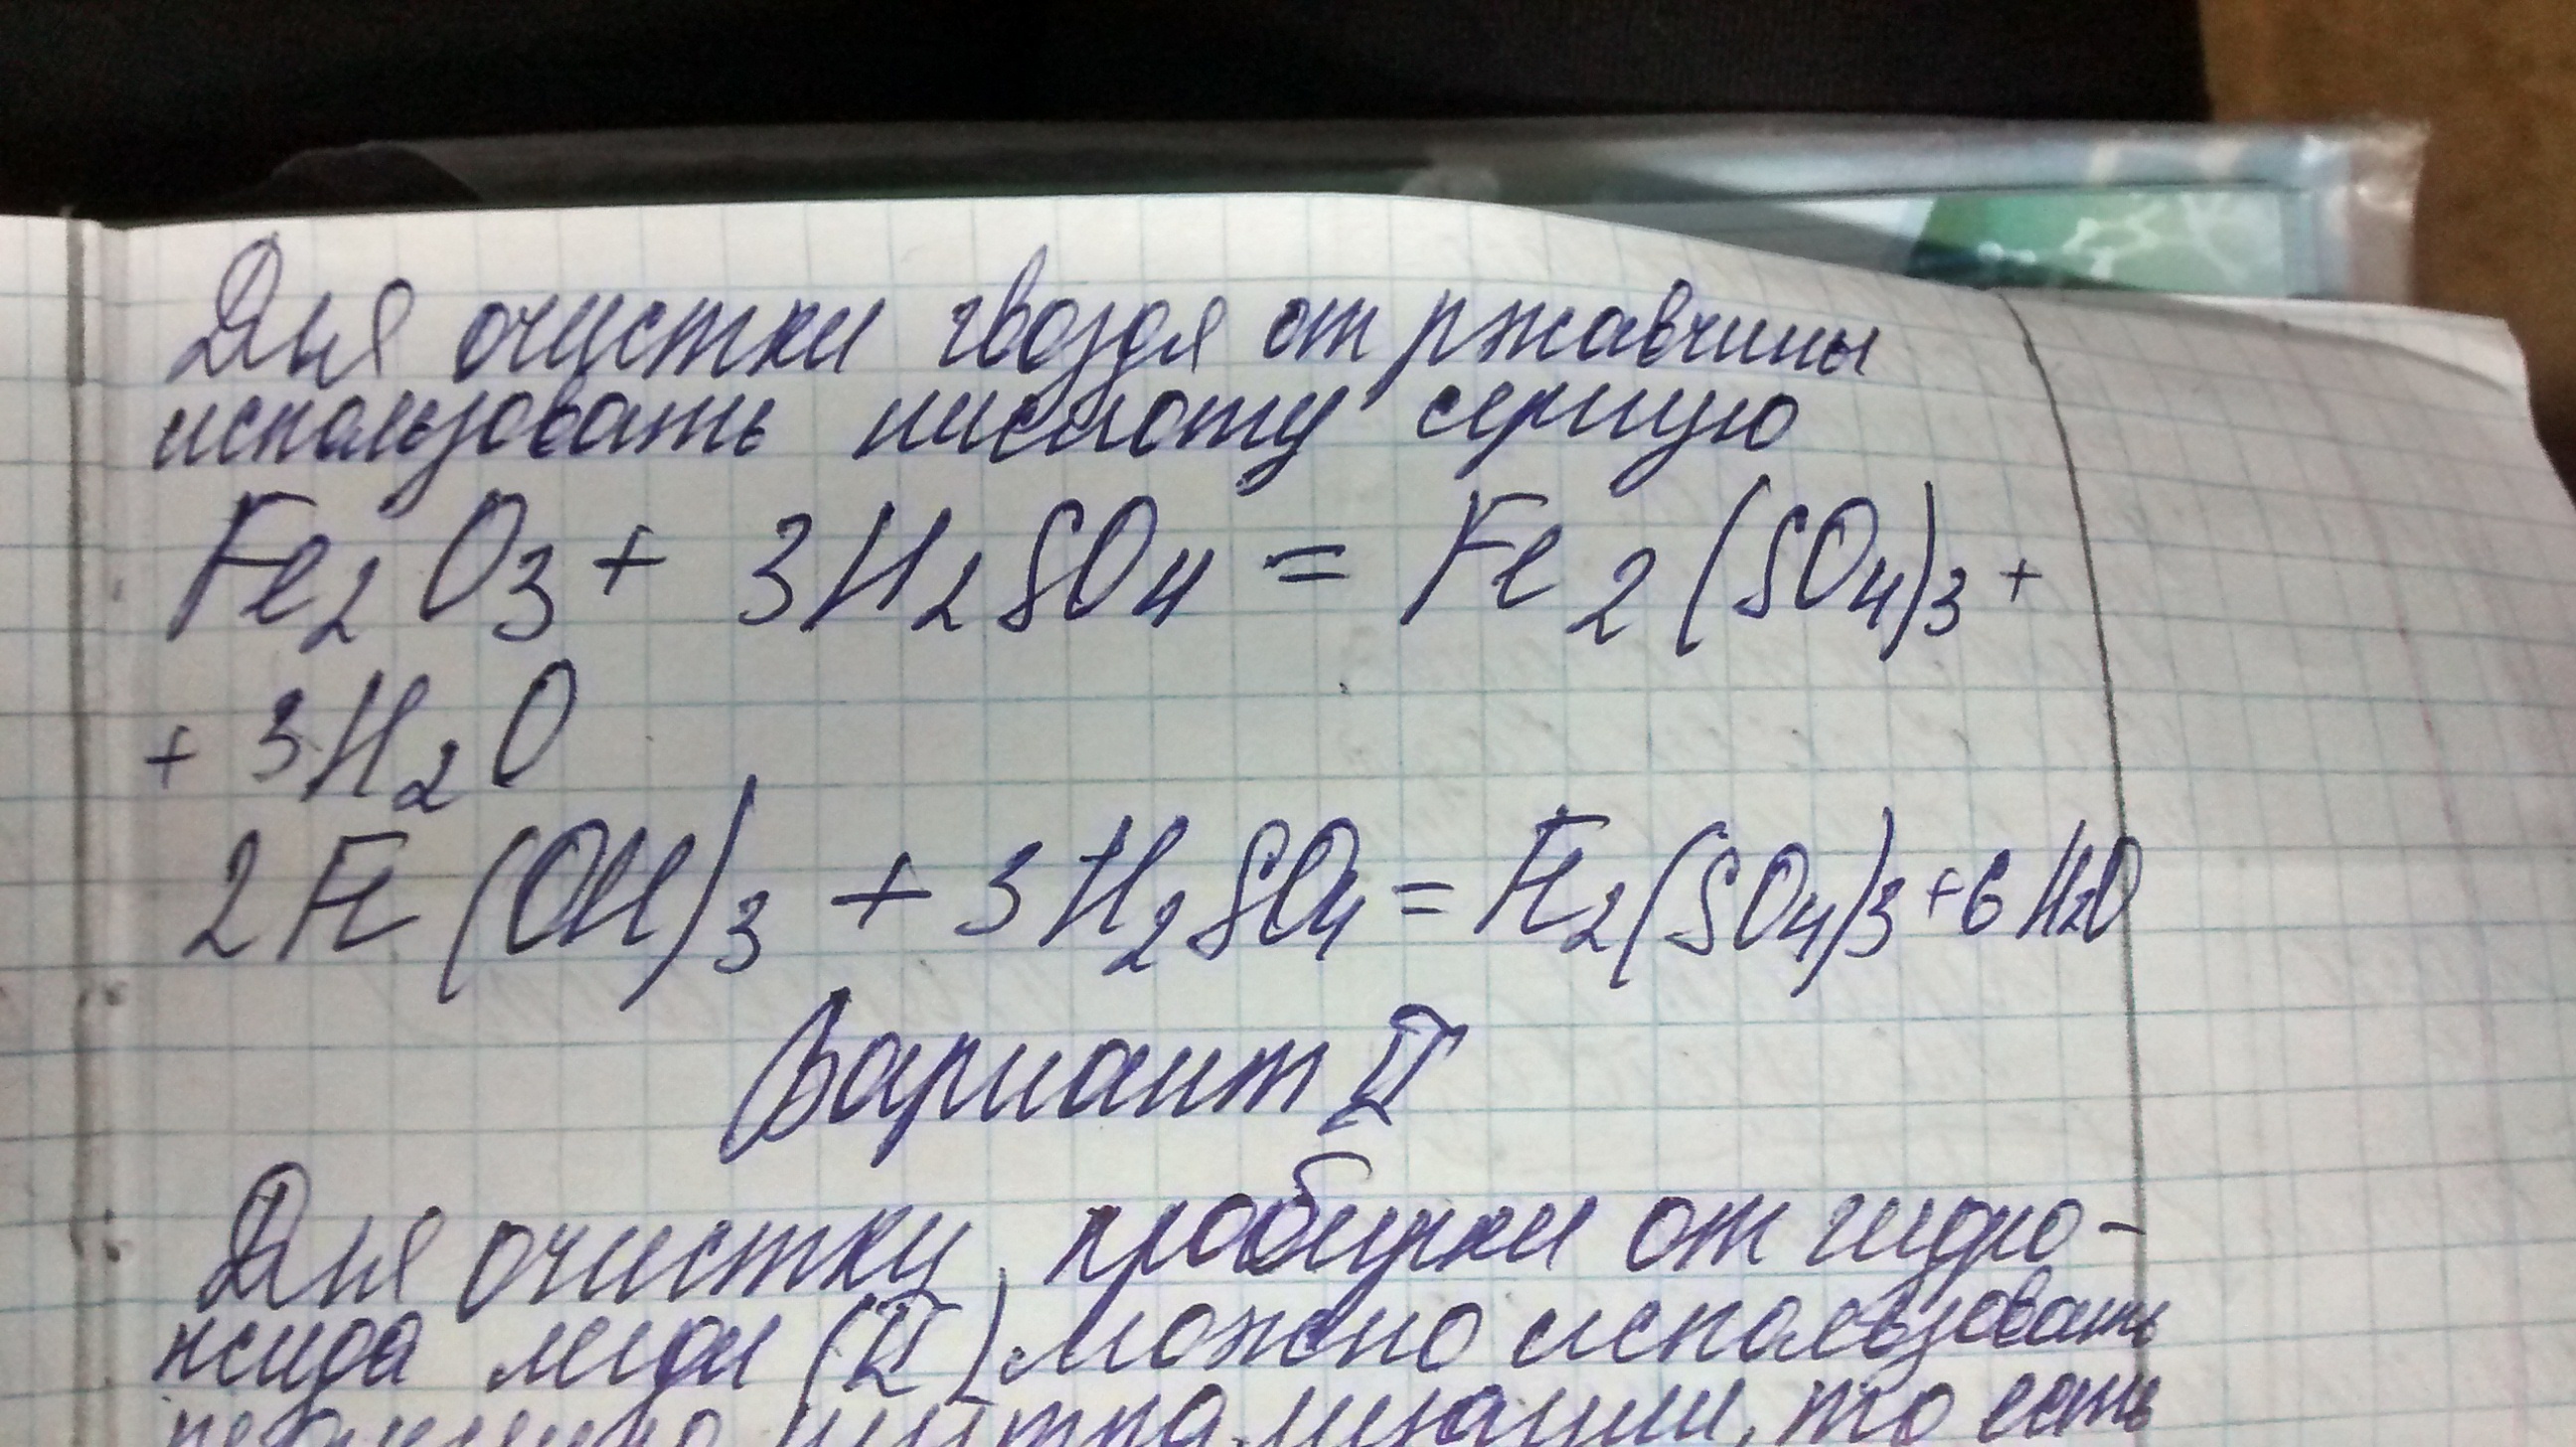 Для очистки гвоздя от ржавчины
использовать кислоту серную
Fe₂O₃ + 3H₂SO₄ = Fe₂(SO₄)₃ +
+ 3H₂O
2Fe(OH)₃ + 3H₂SO₄ = Fe₂(SO₄)₃ + 6H₂O
Вариант II
Для очистки пробирки от гидро-
ксида меди (II) можно использовать
то есть